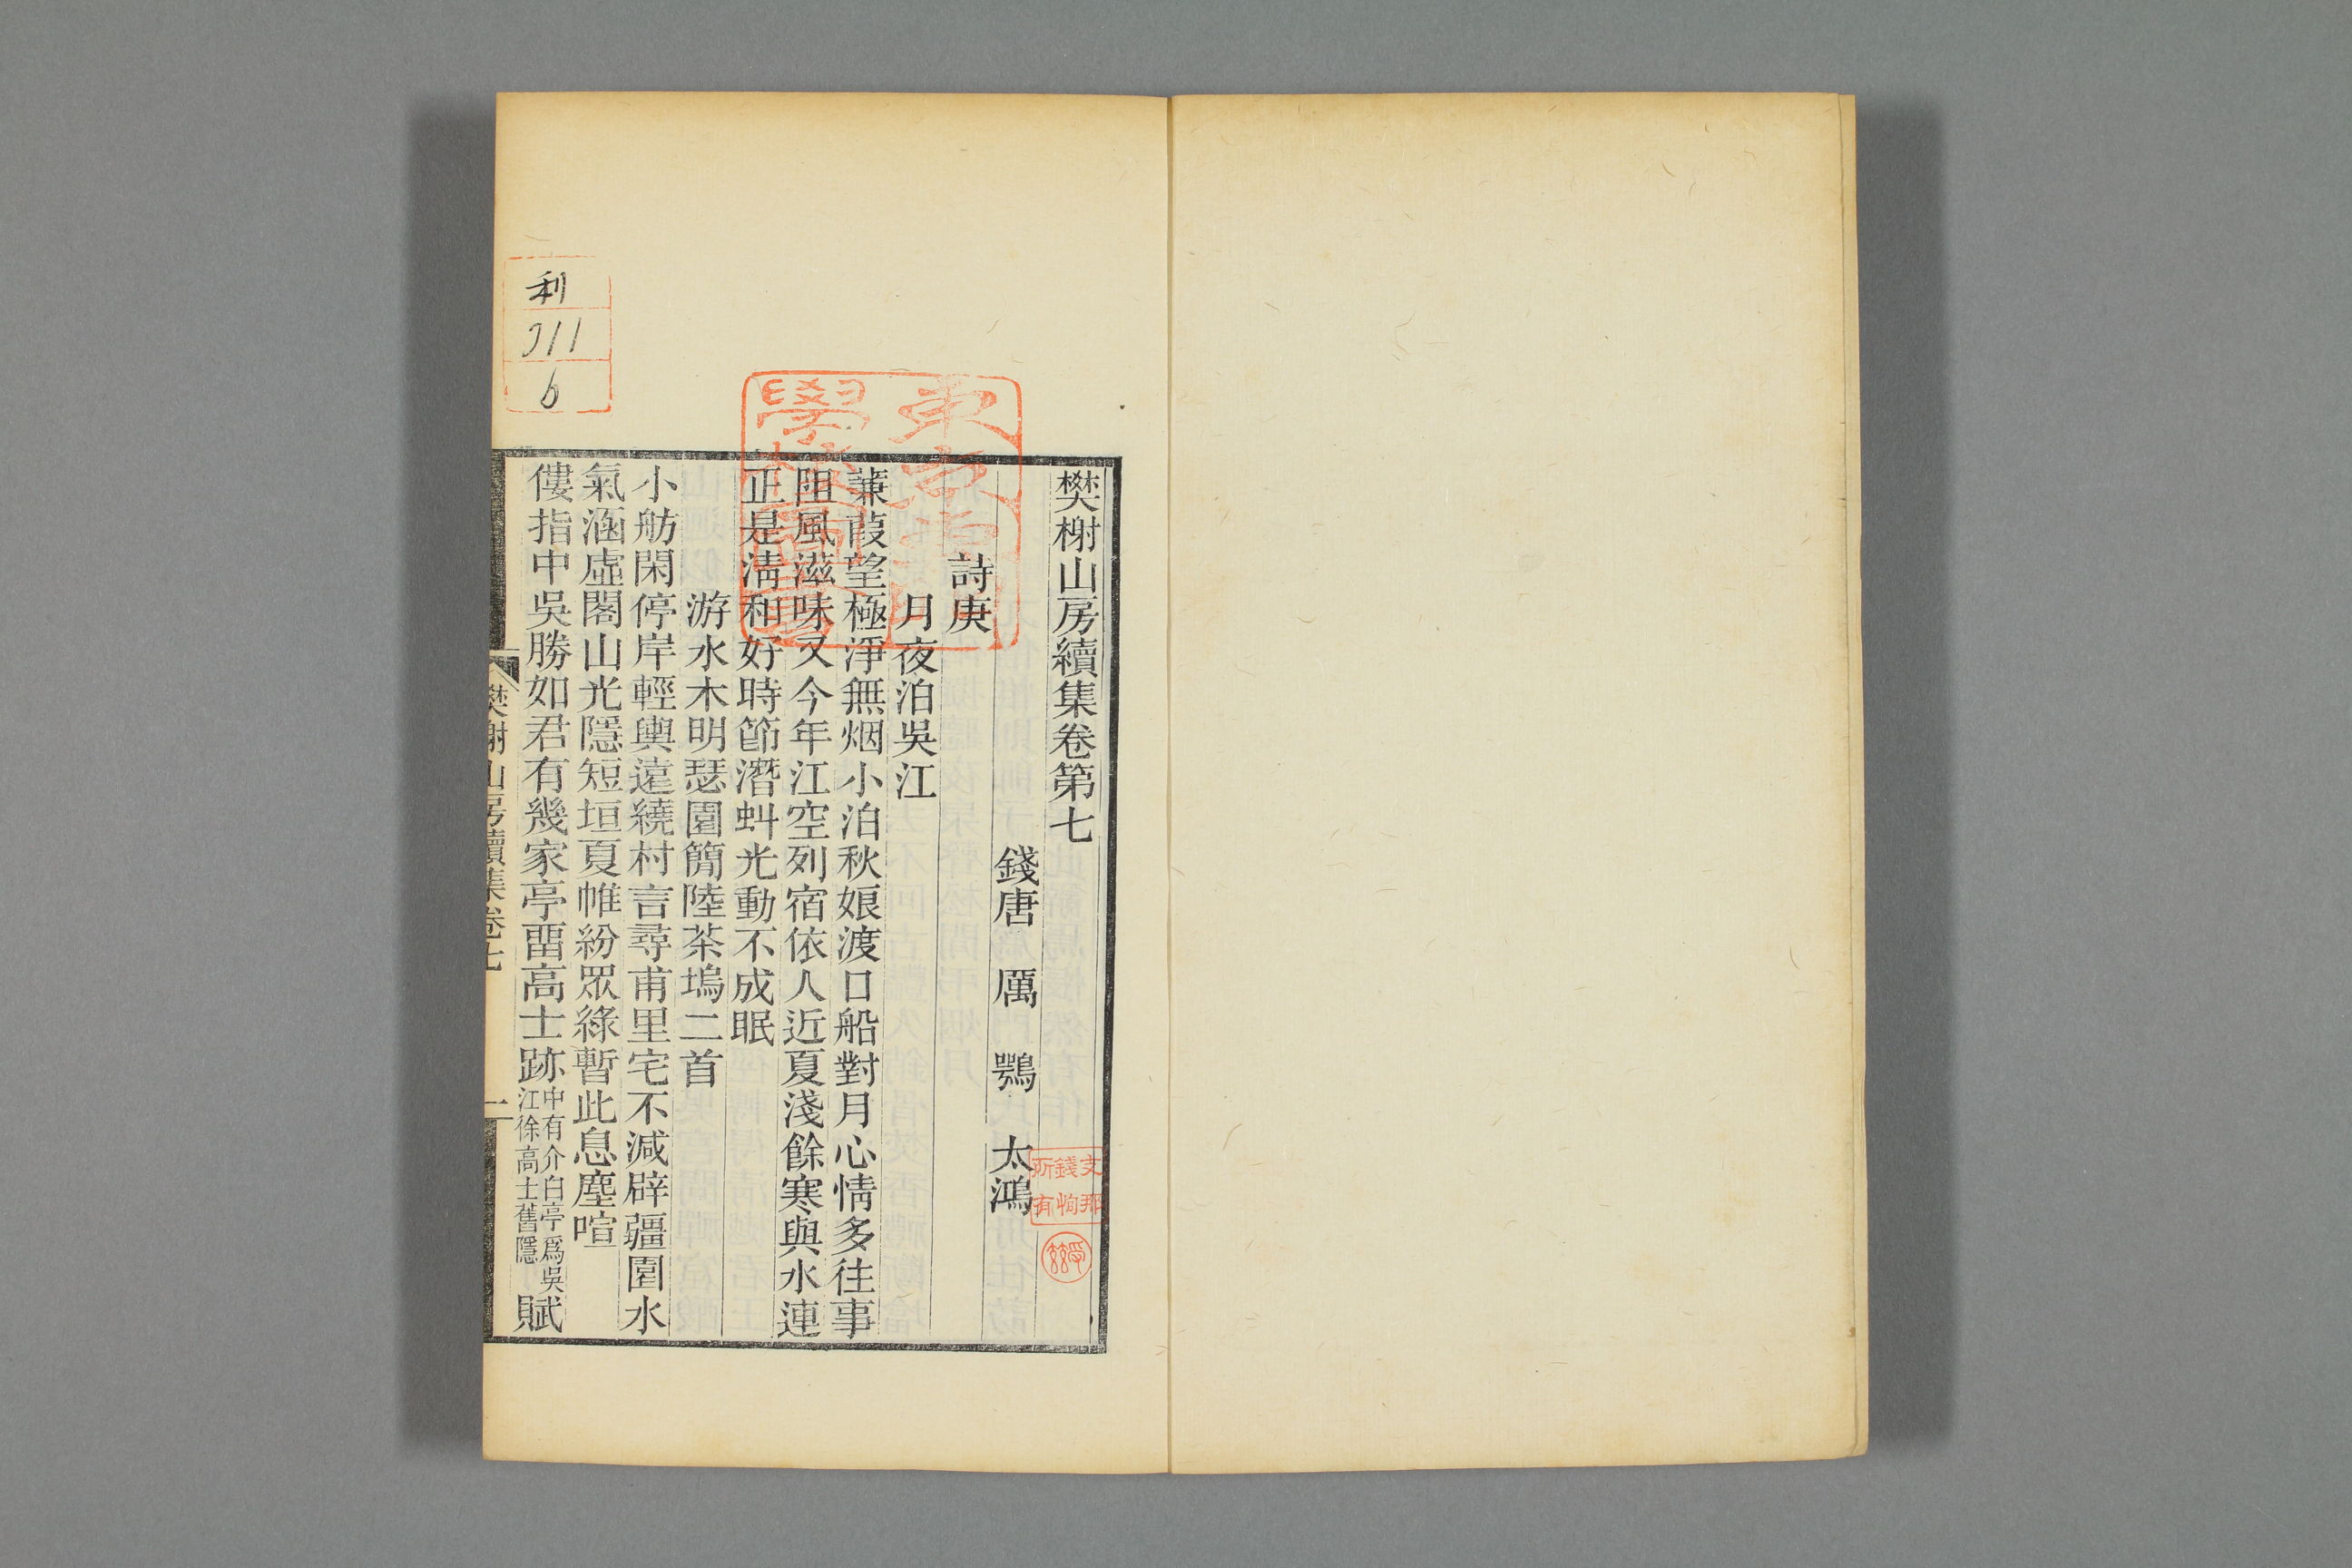 樊榭山房續集卷第七
錢唐 厲 鶚 太鴻
詩庚
月夜泊吳江
蒹葭望極淨無烟小泊秋娘渡口船對月心情多往事
阻風滋味又今年江空列宿依人近夏淺餘寒與水連
正是淸和好時節潛虬光動不成眠
游水木明瑟園簡陸茶塢二首
小舫閑停岸輕輿遠繞村言尋甫里宅不減辟疆園水
氣涵虛閣山光隱短垣夏帷紛眾綠暫此息塵喧
僂指中吳勝如君有幾家亭畱高士跡中有介白亭爲吳江徐高士舊隱賦
樊榭山房續集卷七
一
利
311
6
支那
錢恂
所有